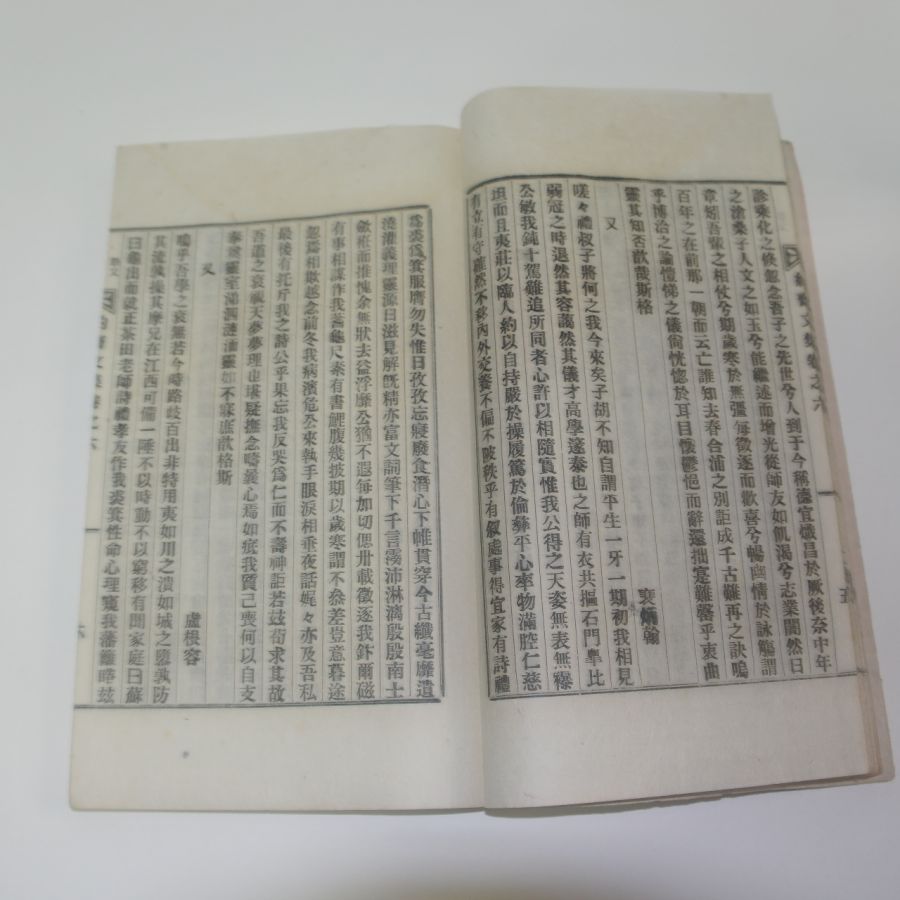 診乘化之倏忽念吾子之先世兮人到于今稱德宜熾昌於厥後奈中年
之滄桑子人文之如玉兮能繼述而增光從師友如飢渴兮志業闇然日
章矧吾輩之相仗兮期歲寒於無彊每徵逐而歡喜兮暢幽情於詠觴謂
百年之在前那一朝而云亡誰知去春合浦之別詎成千古難再之訣嗚
乎博洽之論愷悌之儀倘恍惚於耳目懷鬱悒而辭還拙寔難罄乎衷曲
靈其知否歆哉斯格
又
裵 翰
嗟々禮叔子將何之我今來矣子胡不知自謂平生一牙一期初我相見
弱冠之時退然其容藹然其儀才高學邃泰也之師有衣共摳石門皐比
公敏我鈍十駕難追所同者心許以相隨實惟我公得之天姿無表無襮
坦而且夷莊以臨人約以自持嚴於操履篤於倫彝平心率物滿腔仁慈
有立有守確然不移內外交養不偏不陂秩乎有叙處事得宜家有詩禮
爲裘爲箕服膺勿失惟日孜孜忘寢廢食潛心下帷貫穿今古纖毫靡遺
淹灌義理靈源日滋見解旣精亦富文詞筆下千言霧沛淋漓殷殷南士
斂袵而推愧余無狀去益浮靡公猶不遐每加切偲卅載徵逐我針爾磁
有事相謀作我蓍龜尺素有書鯉腹幾披期以歲寒謂不叅差豈意暮途
忽焉相欺越念前冬我病濱危公來執手眼淚相垂夜話娓々亦及吾私
最後有托斤我之詩公乎果忘我反哭爲仁而不壽神詎若玆苟求其故
吾道之衰視天夢夢理也堪疑撫念疇曩心焉如疵我質已喪何以自支
奉奠靈筵涕泗漣洏靈如不寐庶歆格斯
又
盧根容
嗚乎吾學之衰無若今時路歧百出非特用夷如川之潰如城之隳孰防
其流孰操其摩兄在江西可備一陲不以時動不以窮移有聞家庭曰蘇
曰龜出而就正茶田老師詩禮孝友作我裘箕性命心理窺我藩籬睠玆